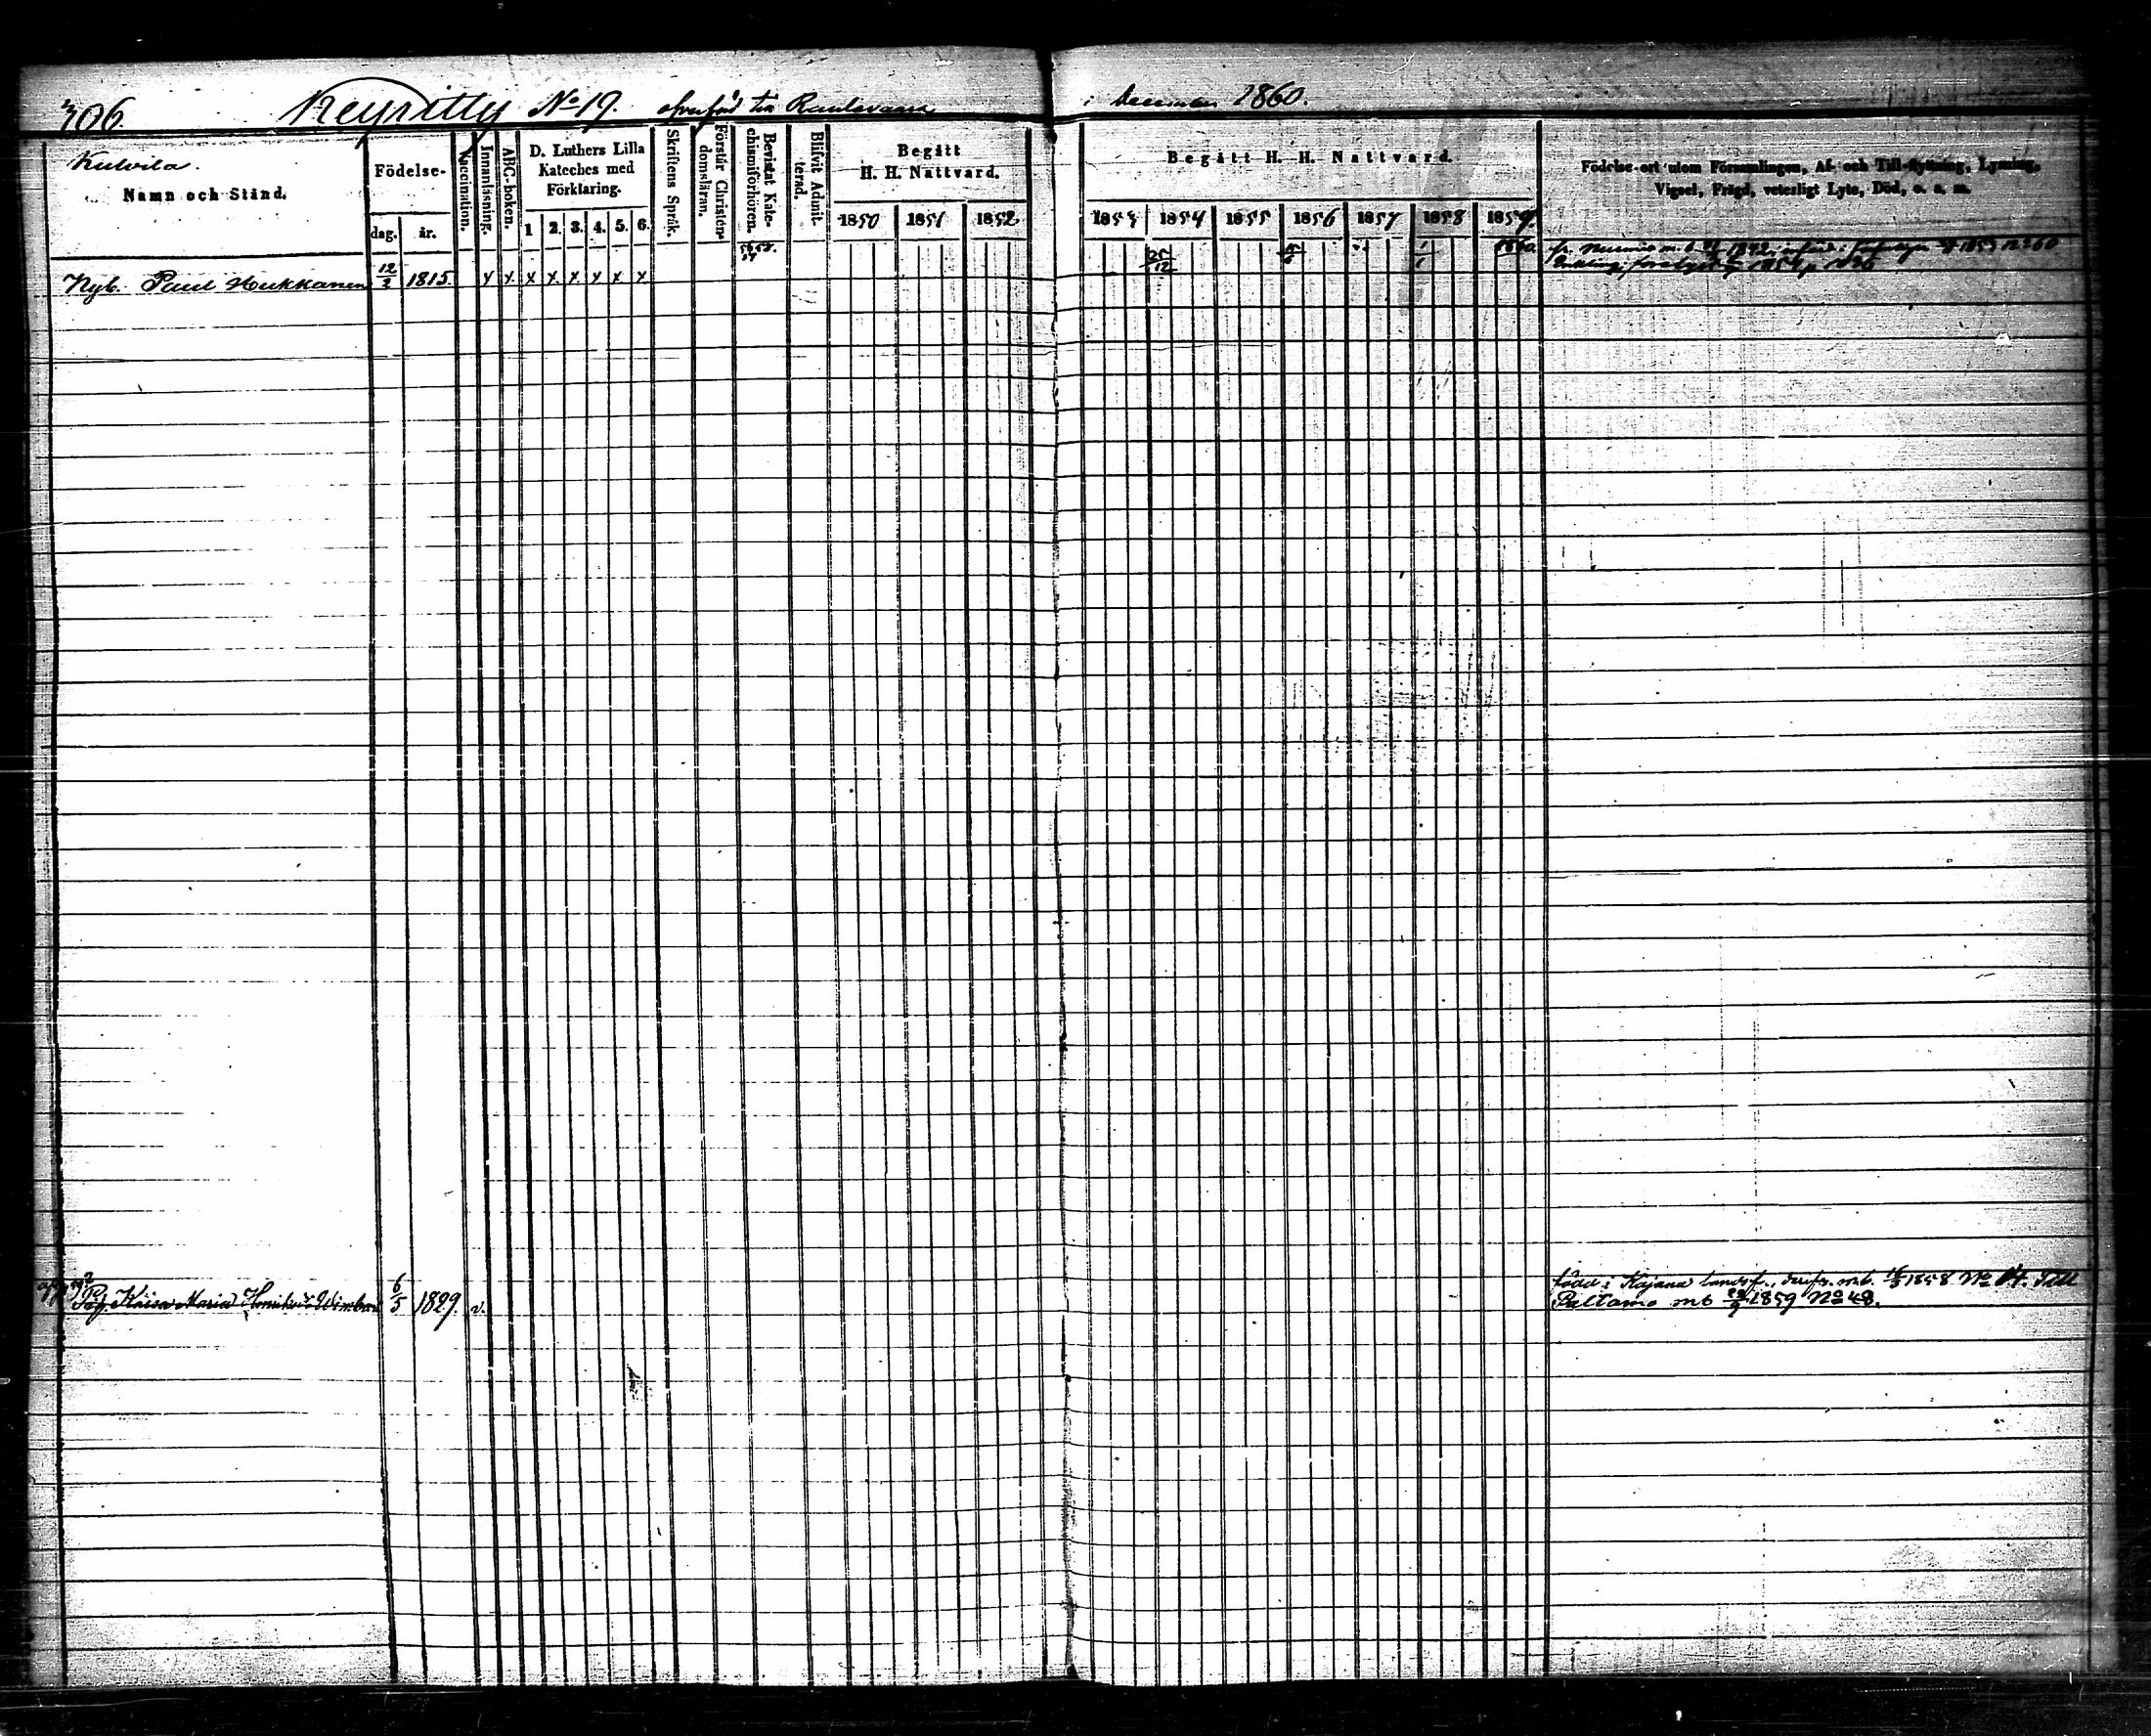 306. Keyritty No 19. i December 1860.
Kulvila.
Namn och Stånd.
Födelse-
dag. år.
Vaccination.
Innanläsning.
ABC-boken.
D. Luthers Lilla
Kateches med
Förklaring.
1 2. 3. 4. 5. 6.
Skriftens Språk.
Förstår Christen-
domsläran.
Bevistat Kate-
chismiförhören.
Blifvit Admit-
terad.
Begått
H. H. Nattvard.
1850 1851 1852
Begått H. H. Nattvard.
1853 1854 1855 1856 1857 1858 1859.
1860.
Födelse-ort utom Församlingen, Af- och Till-flyttning, Lysning,
Vigsel, Frägd, veterligt Lyte, Död, o. s. m.
Nyb. Paul Hukkanen 12/2 1815. x x x x x x x x 25/12
Pig. Kaisa Maria 6/5 1829. v.
född i Kajana landsf., derifr. m.b. 1858 No 14. Till
Paltamo mb 1859 No 48.